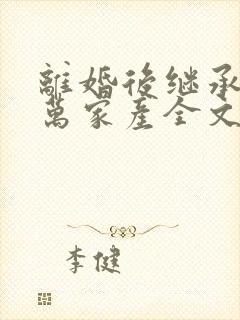 離婚後继承
萬家産全文
李健